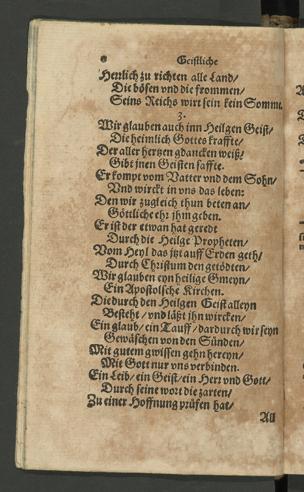 Geistliche
Herlich zu richten alle Land/
Die bösen vnd die frommen/
Seins Reichs wirt sein kein Somme.
3.
Wir glauben auch inn Heilgen Geist/
Die heimlich Gottes kraffte/
Der aller hertzen gdancken weiß/
Gibt jnen Geisten saffte.
Er kompt vom Vatter vnd dem Sohn/
Vnd wirckt in vns das leben:
Den wir zugleich thun beten an/
Göttliche ehr jhm geben.
Er ist der etwan hat geredt
Durch die Heilge Propheten/
Vom Heyl das jtzt auff Erden geth/
Durch Christum den getödten/
Wir glauben eyn heilige Gmeyn/
Ein Apostolsche Kirchen.
Die durch den Heilgen Geist alleyn
Besteht/vnd läßt jhn wircken/
Ein glaub/ein Tauff/dardurch wir seyn
Gewäschen von den Sünden/
Mit gutem gwissen gehn hereyn/
Mit Gott nur vns verbinden.
Ein Leib/ein Geist/ein Herr vnd Gott/
Durch seine wort die zarten/
Zu einer Hoffnung prüfen hat/
All